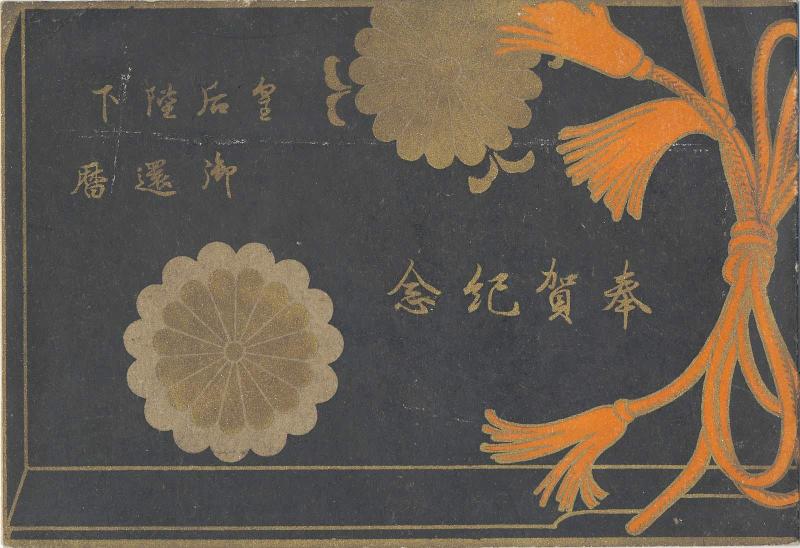 皇后陸下
御還暦
奉賀紀念